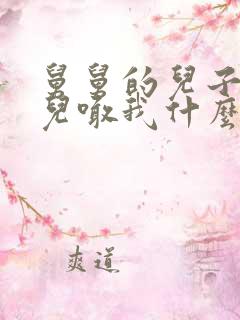 舅舅的兒子
兒噉我什麼
爽道